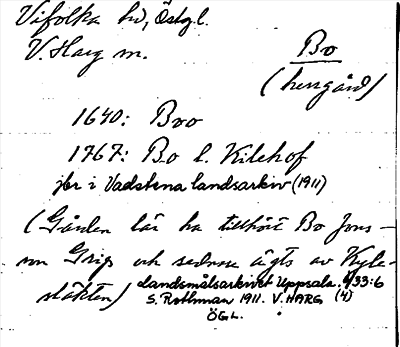 Vifolka hd, Östgl.
V. Harg sn.
Bo
(herrgård)
1640: Boo
1767: Bo l. Kilehof
jbr i Vadstena landsarkiv (1911)
(Gården lär ha tillhört Bo Jons-
son Grip och sedan ägts av Kyle-
släkten)
Landsmålsarkivet Uppsala. 433:6
S. Rothman 1911. V. HARG (4)
ÖGL.